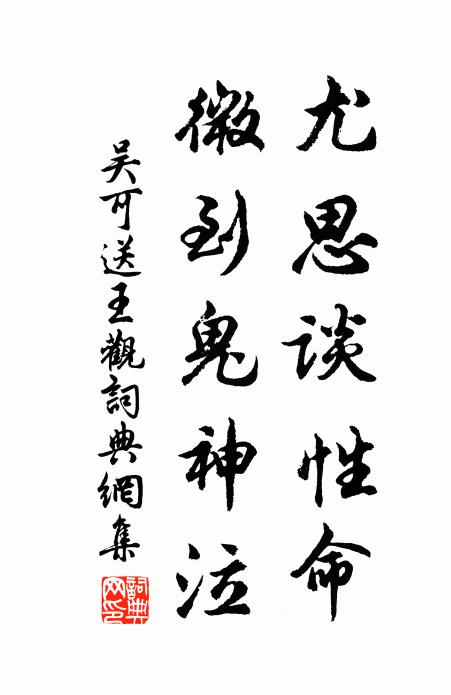 尤思談性命
微到鬼神泣
吴可送王觀詞典網集
詞典網印